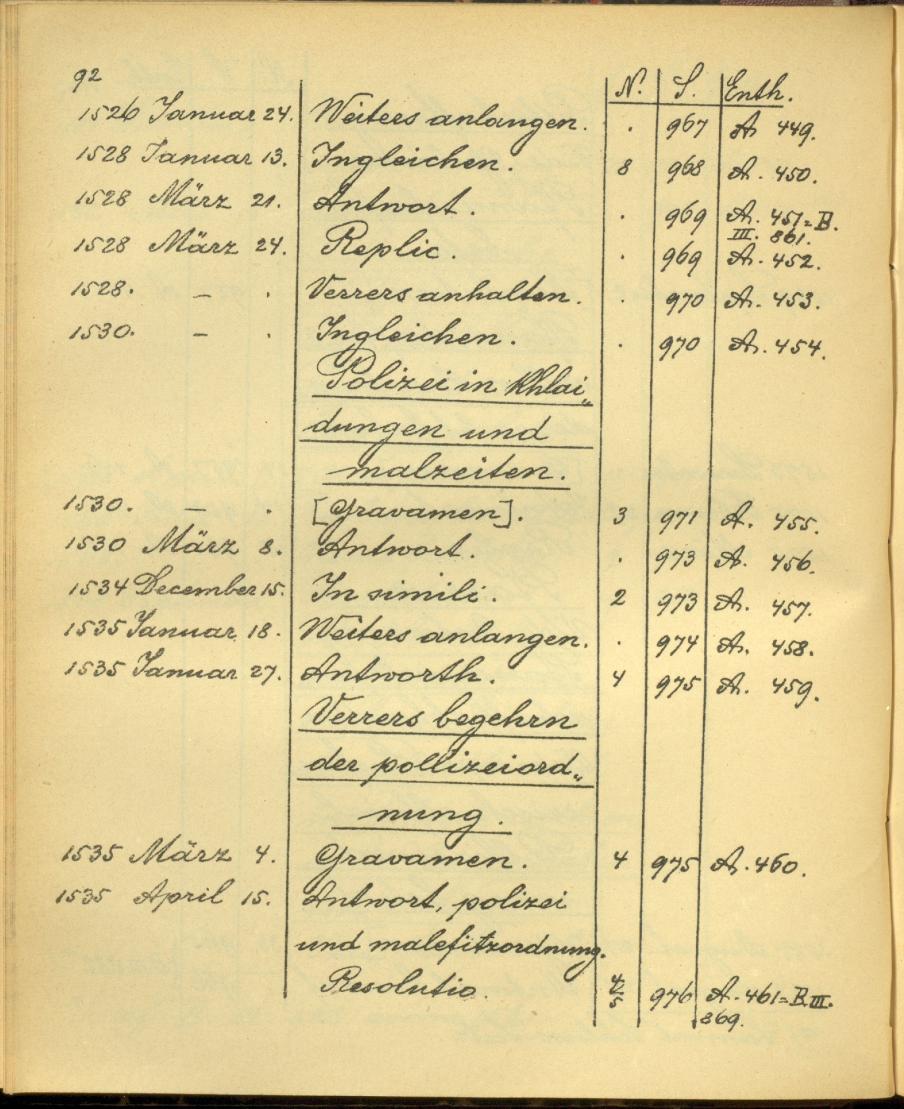 92 N. S. Enth.
1526 Januar 24. Weiters anlangen. . 967 A. 449.
1528 Januar 13. Ingleichen. 8 968 A. 450.
1528 März 21. Antwort. . 969 A. 451=B.
III. 861.
1528 März 24. Replic. . 969 A. 452.
1528. – . Verrers anhalten. . 970 A. 453.
1530. – . Ingleichen. . 970 A. 454.
Polizei in Khlai„
dungen und
malzeiten.
1530. – . [Gravamen]. 3 971 A. 455.
1530 März 8. Antwort. . 973 A. 456.
1534 December 15. In simili. 2 973 A. 457.
1535 Januar 18. Weiters anlangen. . 974 A. 458.
1535 Januar 27. Antworth. 4 975 A. 459.
Verrers begehrn
der pollizeiord„
nung.
1535 März 4. Gravamen. 4 975 A. 460.
1535 April 15. Antwort, polizei
und malefitzordnung.
Resolutio. 4/5 976 A. 461=B.III.
869.